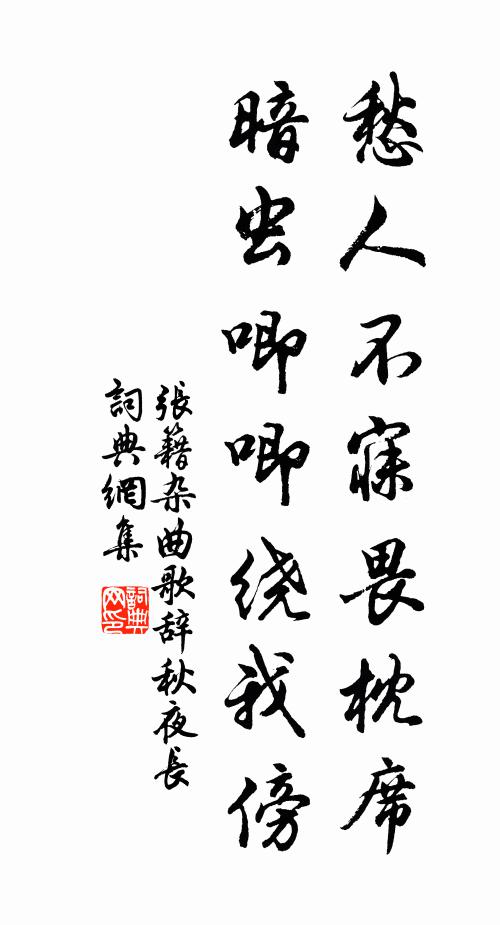 愁人不寐畏枕席
暗虫唧唧绕我傍
張籍杂曲歌辞秋夜長
詞典網集
詞典
网印